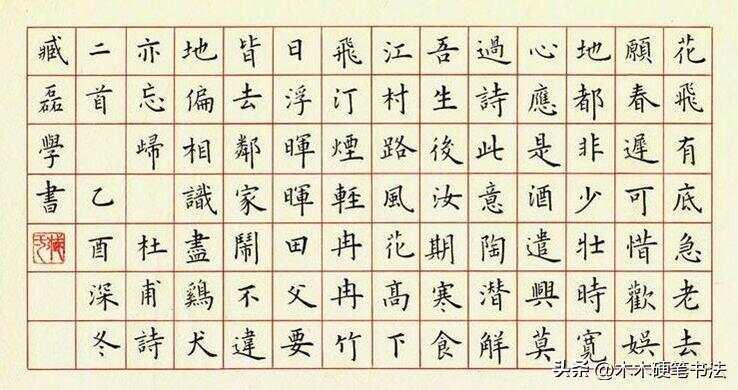 花飛有底急老去
願春遲可惜歡娛
地都非少壯時寬
心應是酒遣興莫
過詩此意陶潛解
吾生後汝期寒食
江村路風花高下
飛汀煙輕冉冉竹
日浮暉暉田父要
皆去鄰家鬧不違
地偏相識盡鷄犬
亦忘歸 杜甫詩
二首 乙酉深冬
臧磊學書
头条 @木木硬笔书法